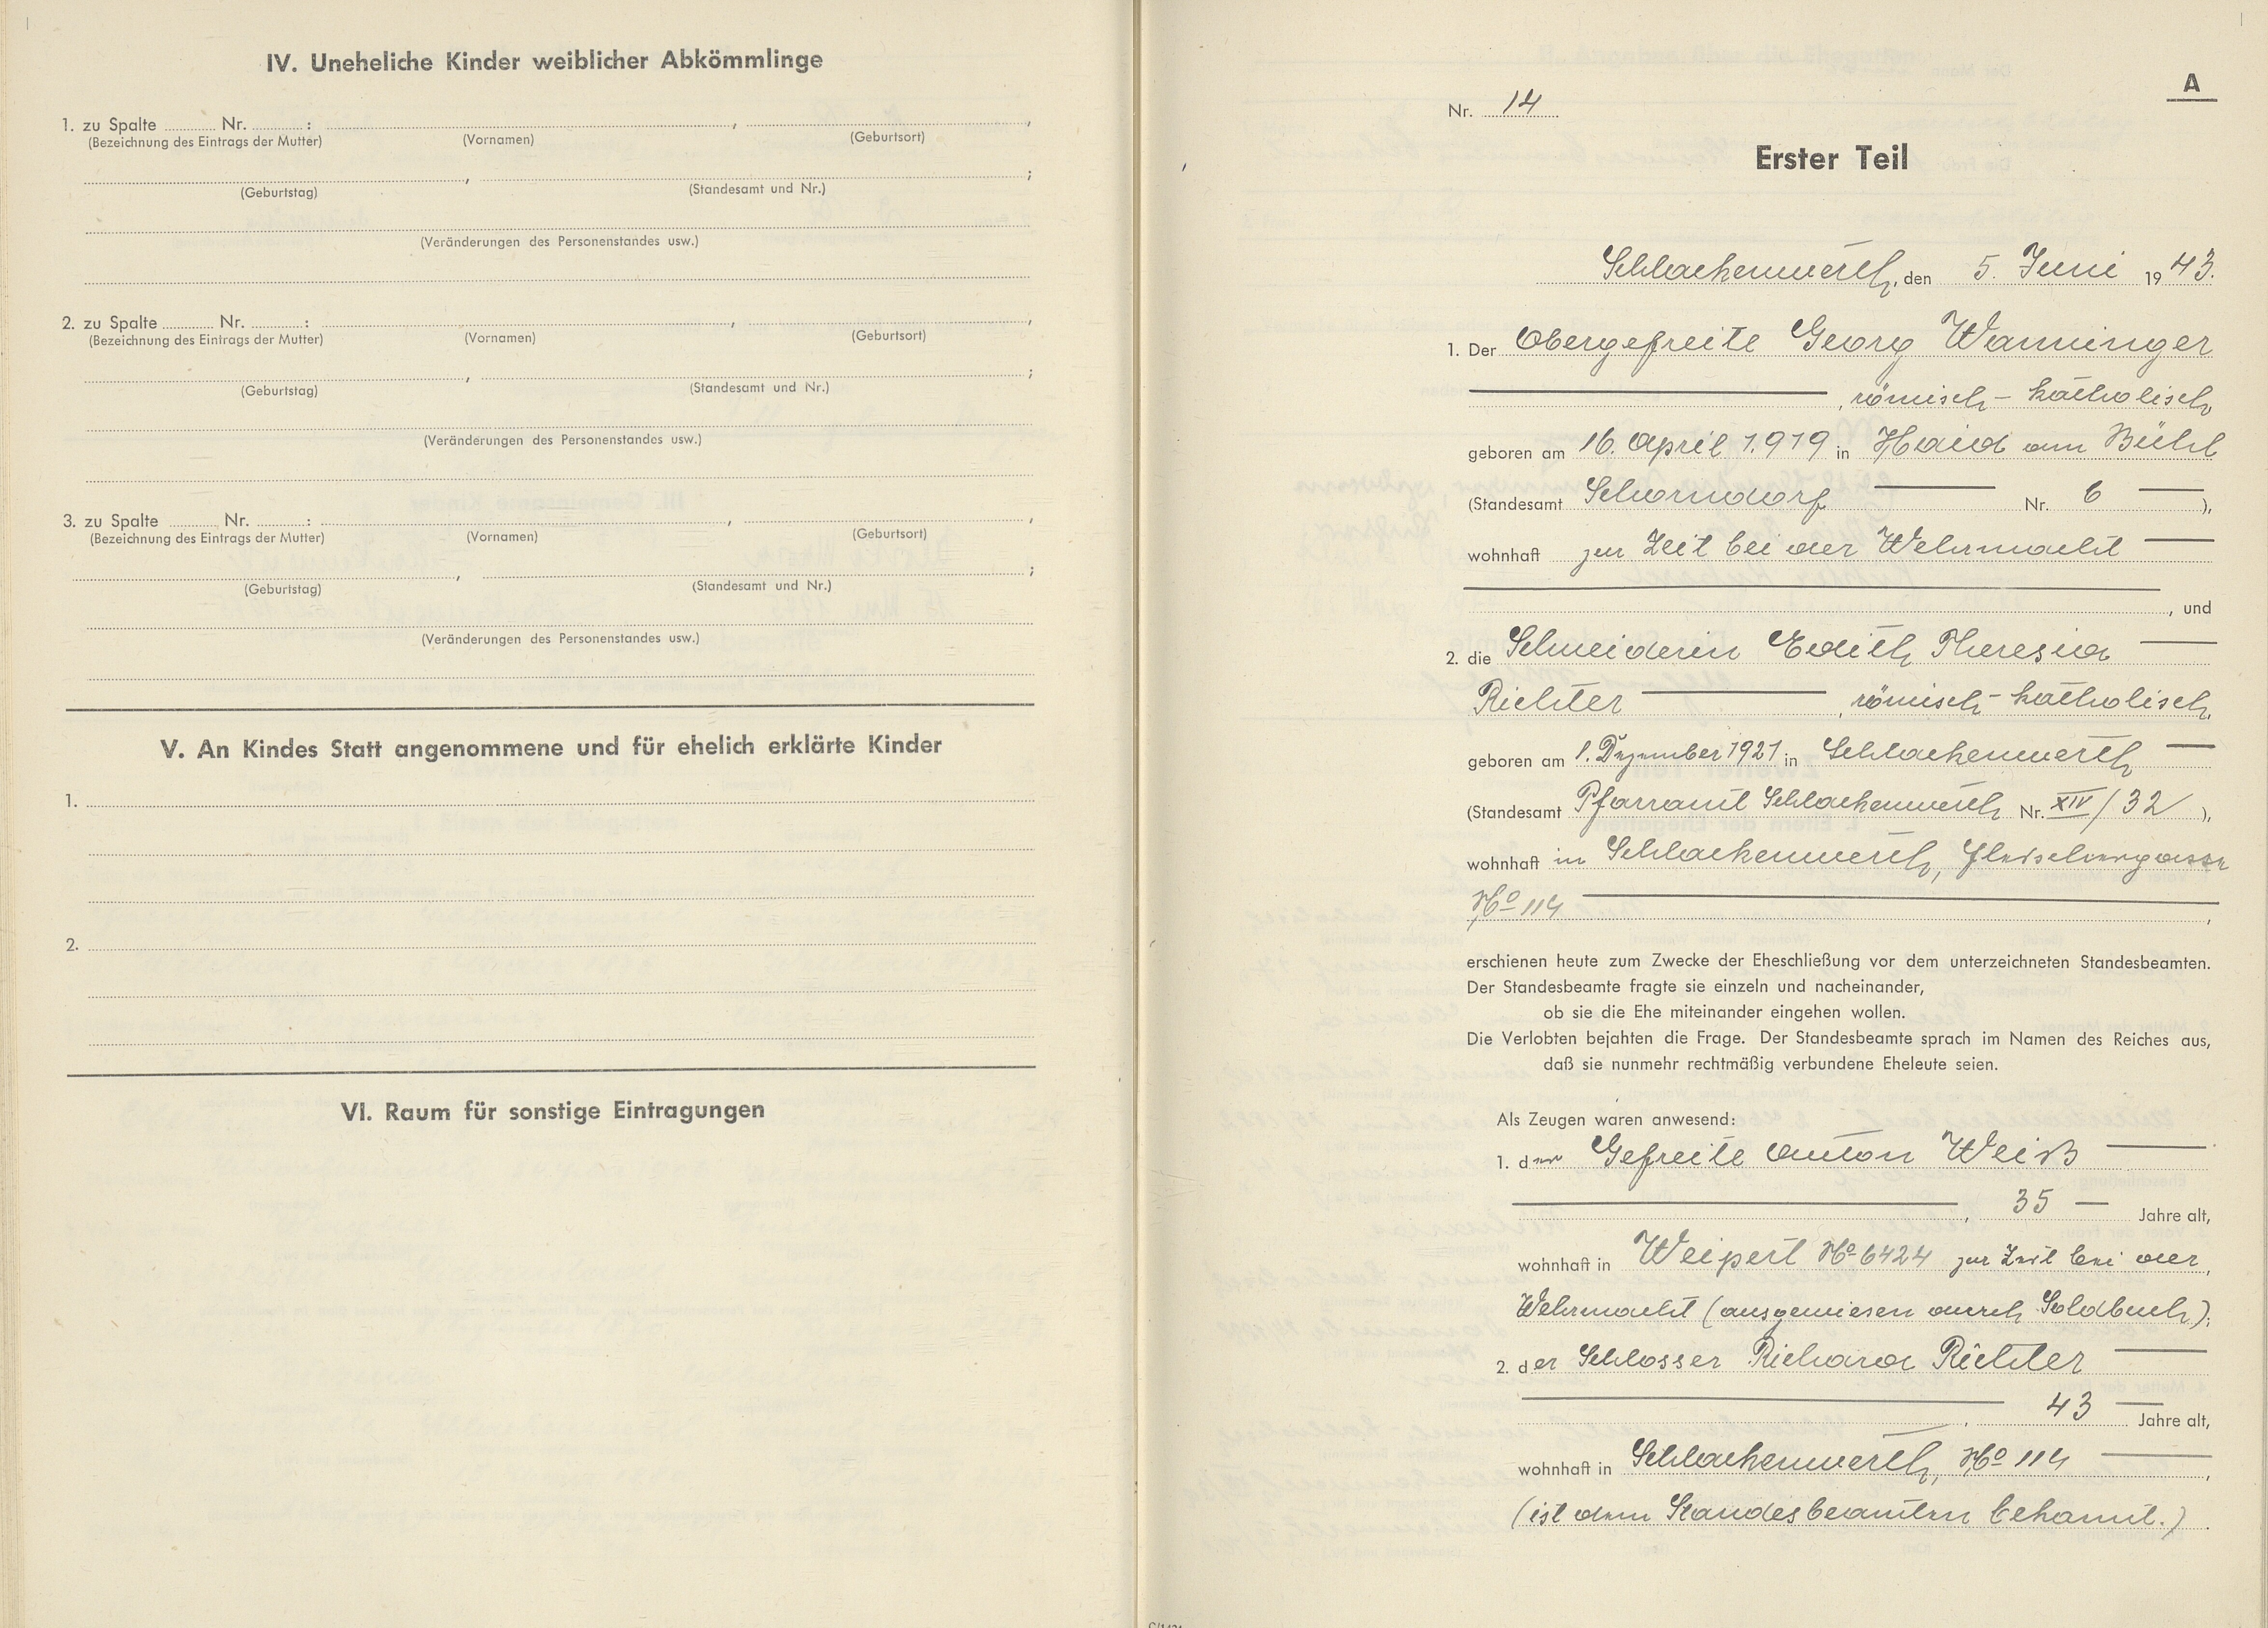 IV. Uneheliche Kinder weiblicher Abkömmlinge
1. zu Spalte ......... Nr. ......... : ........................ , ........................ ,
(Bezeichnung des Eintrags der Mutter) (Vornamen) (Geburtsort)
........................ , ........................ ;
(Geburtstag) (Standesamt und Nr.)
(Veränderungen des Personenstandes usw.)
2. zu Spalte ......... Nr. ......... : ........................ , ........................ ,
(Bezeichnung des Eintrags der Mutter) (Vornamen) (Geburtsort)
........................ , ........................ ;
(Geburtstag) (Standesamt und Nr.)
(Veränderungen des Personenstandes usw.)
3. zu Spalte ......... Nr. ......... : ........................ , ........................ ,
(Bezeichnung des Eintrags der Mutter) (Vornamen) (Geburtsort)
........................ , ........................ ;
(Geburtstag) (Standesamt und Nr.)
(Veränderungen des Personenstandes usw.)
V. An Kindes Statt angenommene und für ehelich erklärte Kinder
1.
2.
VI. Raum für sonstige Eintragungen
A
Nr. 14
Erster Teil
Schlackenwerth, den 5. Juni 1943.
1. Der Obergefreite Georg Wanninger
, römisch-katholisch
geboren am 16. April 1919 in Haid am Bühl
(Standesamt Schorndorf Nr. 6 ),
wohnhaft zur Zeit bei der Wehrmacht
, und
2. die Schneiderin Edith Theresia
Richter , römisch-katholisch,
geboren am 1. Dezember 1921 in Schlackenwerth
(Standesamt Pfarramt Schlackenwerth Nr. XIV/32 ),
wohnhaft in Schlackenwerth, Fleischergasse
No 114 ,
erschienen heute zum Zwecke der Eheschließung vor dem unterzeichneten Standesbeamten.
Der Standesbeamte fragte sie einzeln und nacheinander,
ob sie die Ehe miteinander eingehen wollen.
Die Verlobten bejahten die Frage. Der Standesbeamte sprach im Namen des Reiches aus,
daß sie nunmehr rechtmäßig verbundene Eheleute seien.
Als Zeugen waren anwesend:
1. der Gefreite Anton Weiß
, 35 Jahre alt,
wohnhaft in Weipert No 6424 zur Zeit bei der,
Wehrmacht (ausgewiesen durch Soldbuch);
2. der Schlosser Richard Richter
, 43 Jahre alt,
wohnhaft in Schlackenwerth, No 114 ,
(ist dem Standesbeamten bekannt.) .